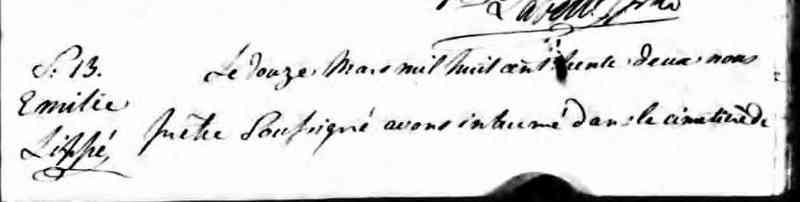 Labelle ptre
S. 13.
Emilie
Lippé
Le douze Mars mil huit cent trente deux nous
prêtre Soussigné avons inhumé dans le cimetière de